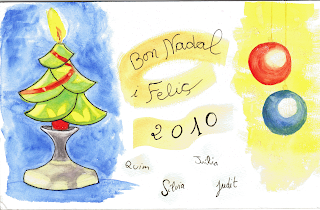 Bon Nadal
i Feliç
2010
Quim Julia
Sílvia Judit